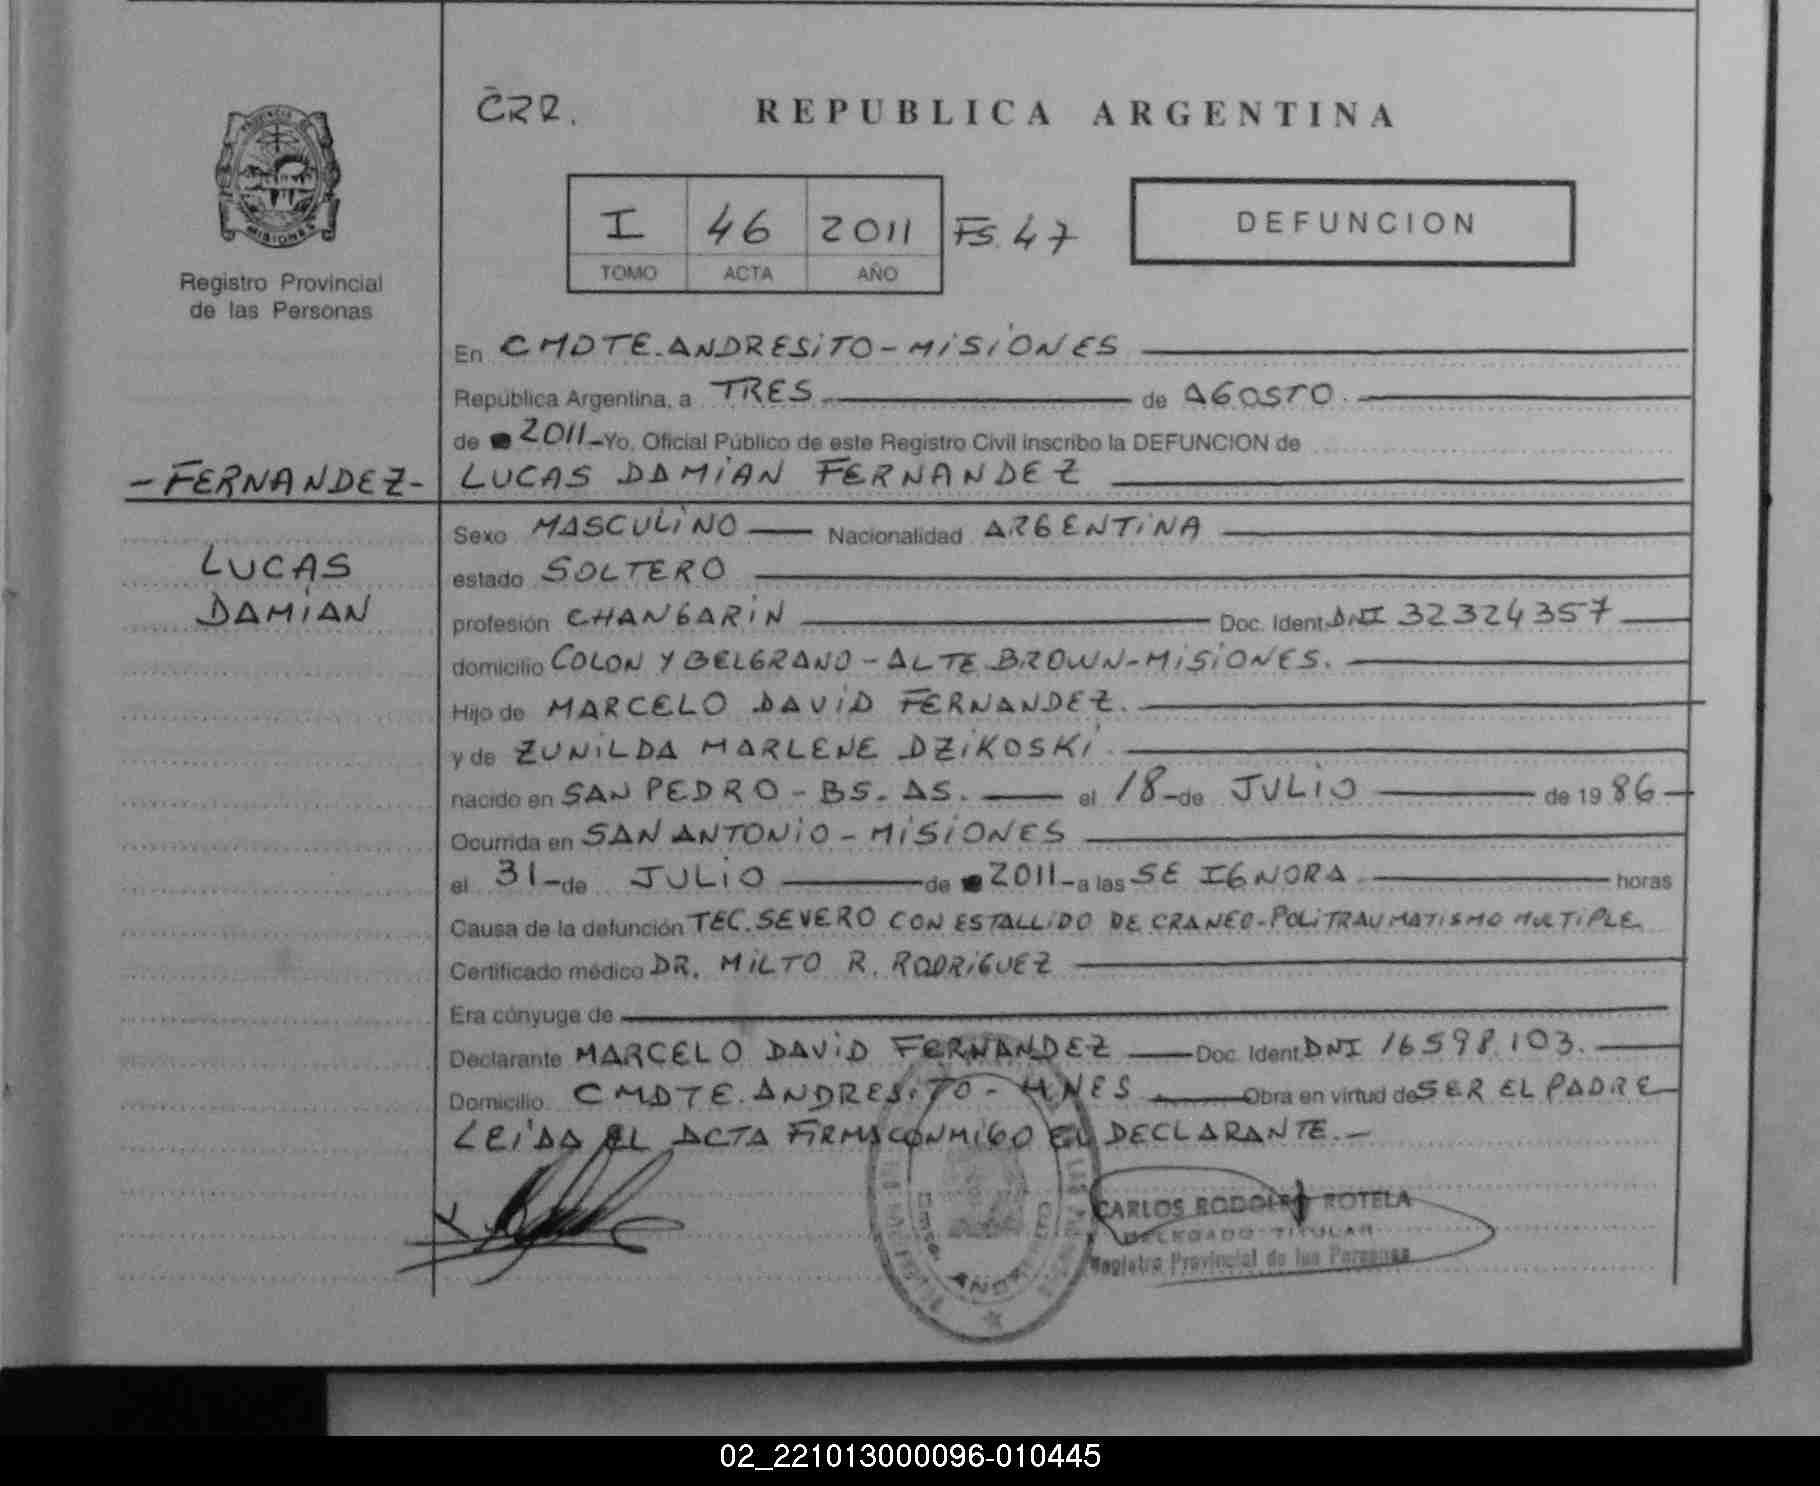 CRR.
REPUBLICA ARGENTINA
PROVINCIA DE
MISIONES
Registro Provincial
de las Personas
I 46 2011 Fs. 47
TOMO ACTA AÑO
DEFUNCION
En CMDTE. ANDRESiTO - MiSiONES
República Argentina, a TRES de AGOSTO.
de 2011 - Yo, Oficial Público de este Registro Civil inscribo la DEFUNCION de
- FERNANDEZ - LUCAS DAMiAN FERNANDEZ
Sexo MASCULiNO Nacionalidad ARGENTiNA
LUCAS
estado SOLTERO
DAMiAN
profesión CHANGARiN Doc. Ident. DNI 32324357
domicilio COLON Y BELGRANO - ALTE BROWN - MiSiONES.
Hijo de MARCELO DAViD FERNANDEZ.
y de ZUNiLDA MARLENE DZiKOSKi.
nacido en SAN PEDRO - BS. AS. el 18 - de JULiO de 19 86
Ocurrida en SAN ANTONiO - MiSiONES
el 31 - de JULiO de 2011 - a las SE IGNORA horas
Causa de la defunción TEC. SEVERO CON ESTALLiDO DE CRANEO - POLiTRAUMATiSMO MULTiPLE.
Certificado médico DR. MiLTO R. RODRiGUEZ
Era cónyuge de
Declarante MARCELO DAViD FERNANDEZ Doc. Ident. DNI 16598.103.
Domicilio CMDTE. ANDRESiTO - MNES Obra en virtud de SER EL PADRE
LEiDA EL ACTA FiRMA CONMiGO EL DECLARANTE. -
CARLOS RODOLFO ROTELA
DELEGADO TITULAR
Registro Provincial de las Personas
02_221013000096-010445